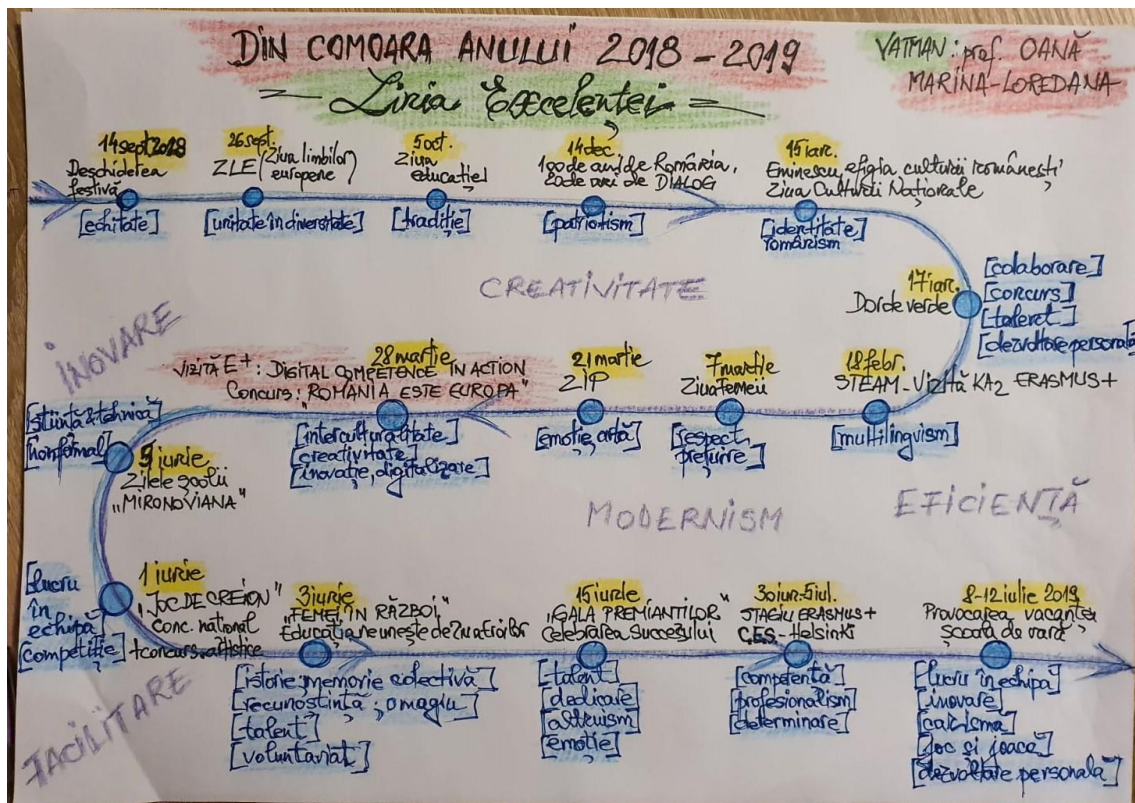 DIN COMOARA ANULUI" 2018 - 2019
Linia Excelenței
VATMAN: prof. OANĂ
MARINA-LOREDANA
14 sept 2018
Deschiderea
festivă
[echitate]
26 sept.
ZLE (Ziua limbilor
europene)
[unitate în diversitate]
5 oct.
Ziua
educației
[tradiție]
14 dec.
100 de ani de România,
20 de ani de DIALOG
[patriotism]
15 ian.
Eminescu, efigia culturii românești
Ziua Culturii Naționale
[identitate]
românism
17 ian.
verde
[colaborare]
[concurs]
[talent]
[dezvoltare personală]
CREATIVITATE
INOVARE
VIZITĂ E+: DIGITAL COMPETENCE IN ACTION
28 martie
Concurs: ROMANIA ESTE EUROPA"
[interculturalitate]
[creativitate]
[inovație, digitalizare]
21 martie
ZIP
[emoție, artă]
7 martie
Ziua femeii
[respect,
prețuire]
18 febr.
STEAM - Vizită KA2 ERASMUS+
[multilingvism]
[știință & tehnică]
[nonformal]
iunie
Zilele școlii
„MIRONOVIANA"
MODERNISM
EFICIENȚĂ
[lucru
în
echipă]
[competiție]
1 iunie
„JOC DE CREION"
Conc. național
+concurs artistice
3 iunie
„FEMEI ÎN RĂZBOI"
Educația ne unește
[istorie; memorie colectivă]
[recunoștință; omagiu]
[talent]
[voluntariat]
15 iunie
„GALA PREMIANȚILOR"
Celebrarea Succesului
[talent]
[dedicare]
[altruism]
[emoție]
30 iun.-5 iul.
STAGIU ERASMUS+
CES - Helsinki
[competență]
[profesionalism]
[determinare]
8-12 iulie 2019
Provocarea vacanței
Școala de vară
[lucru în echipa]
[inovare]
[carisma]
[joc și joacă]
[dezvoltare personală]
FACILITARE